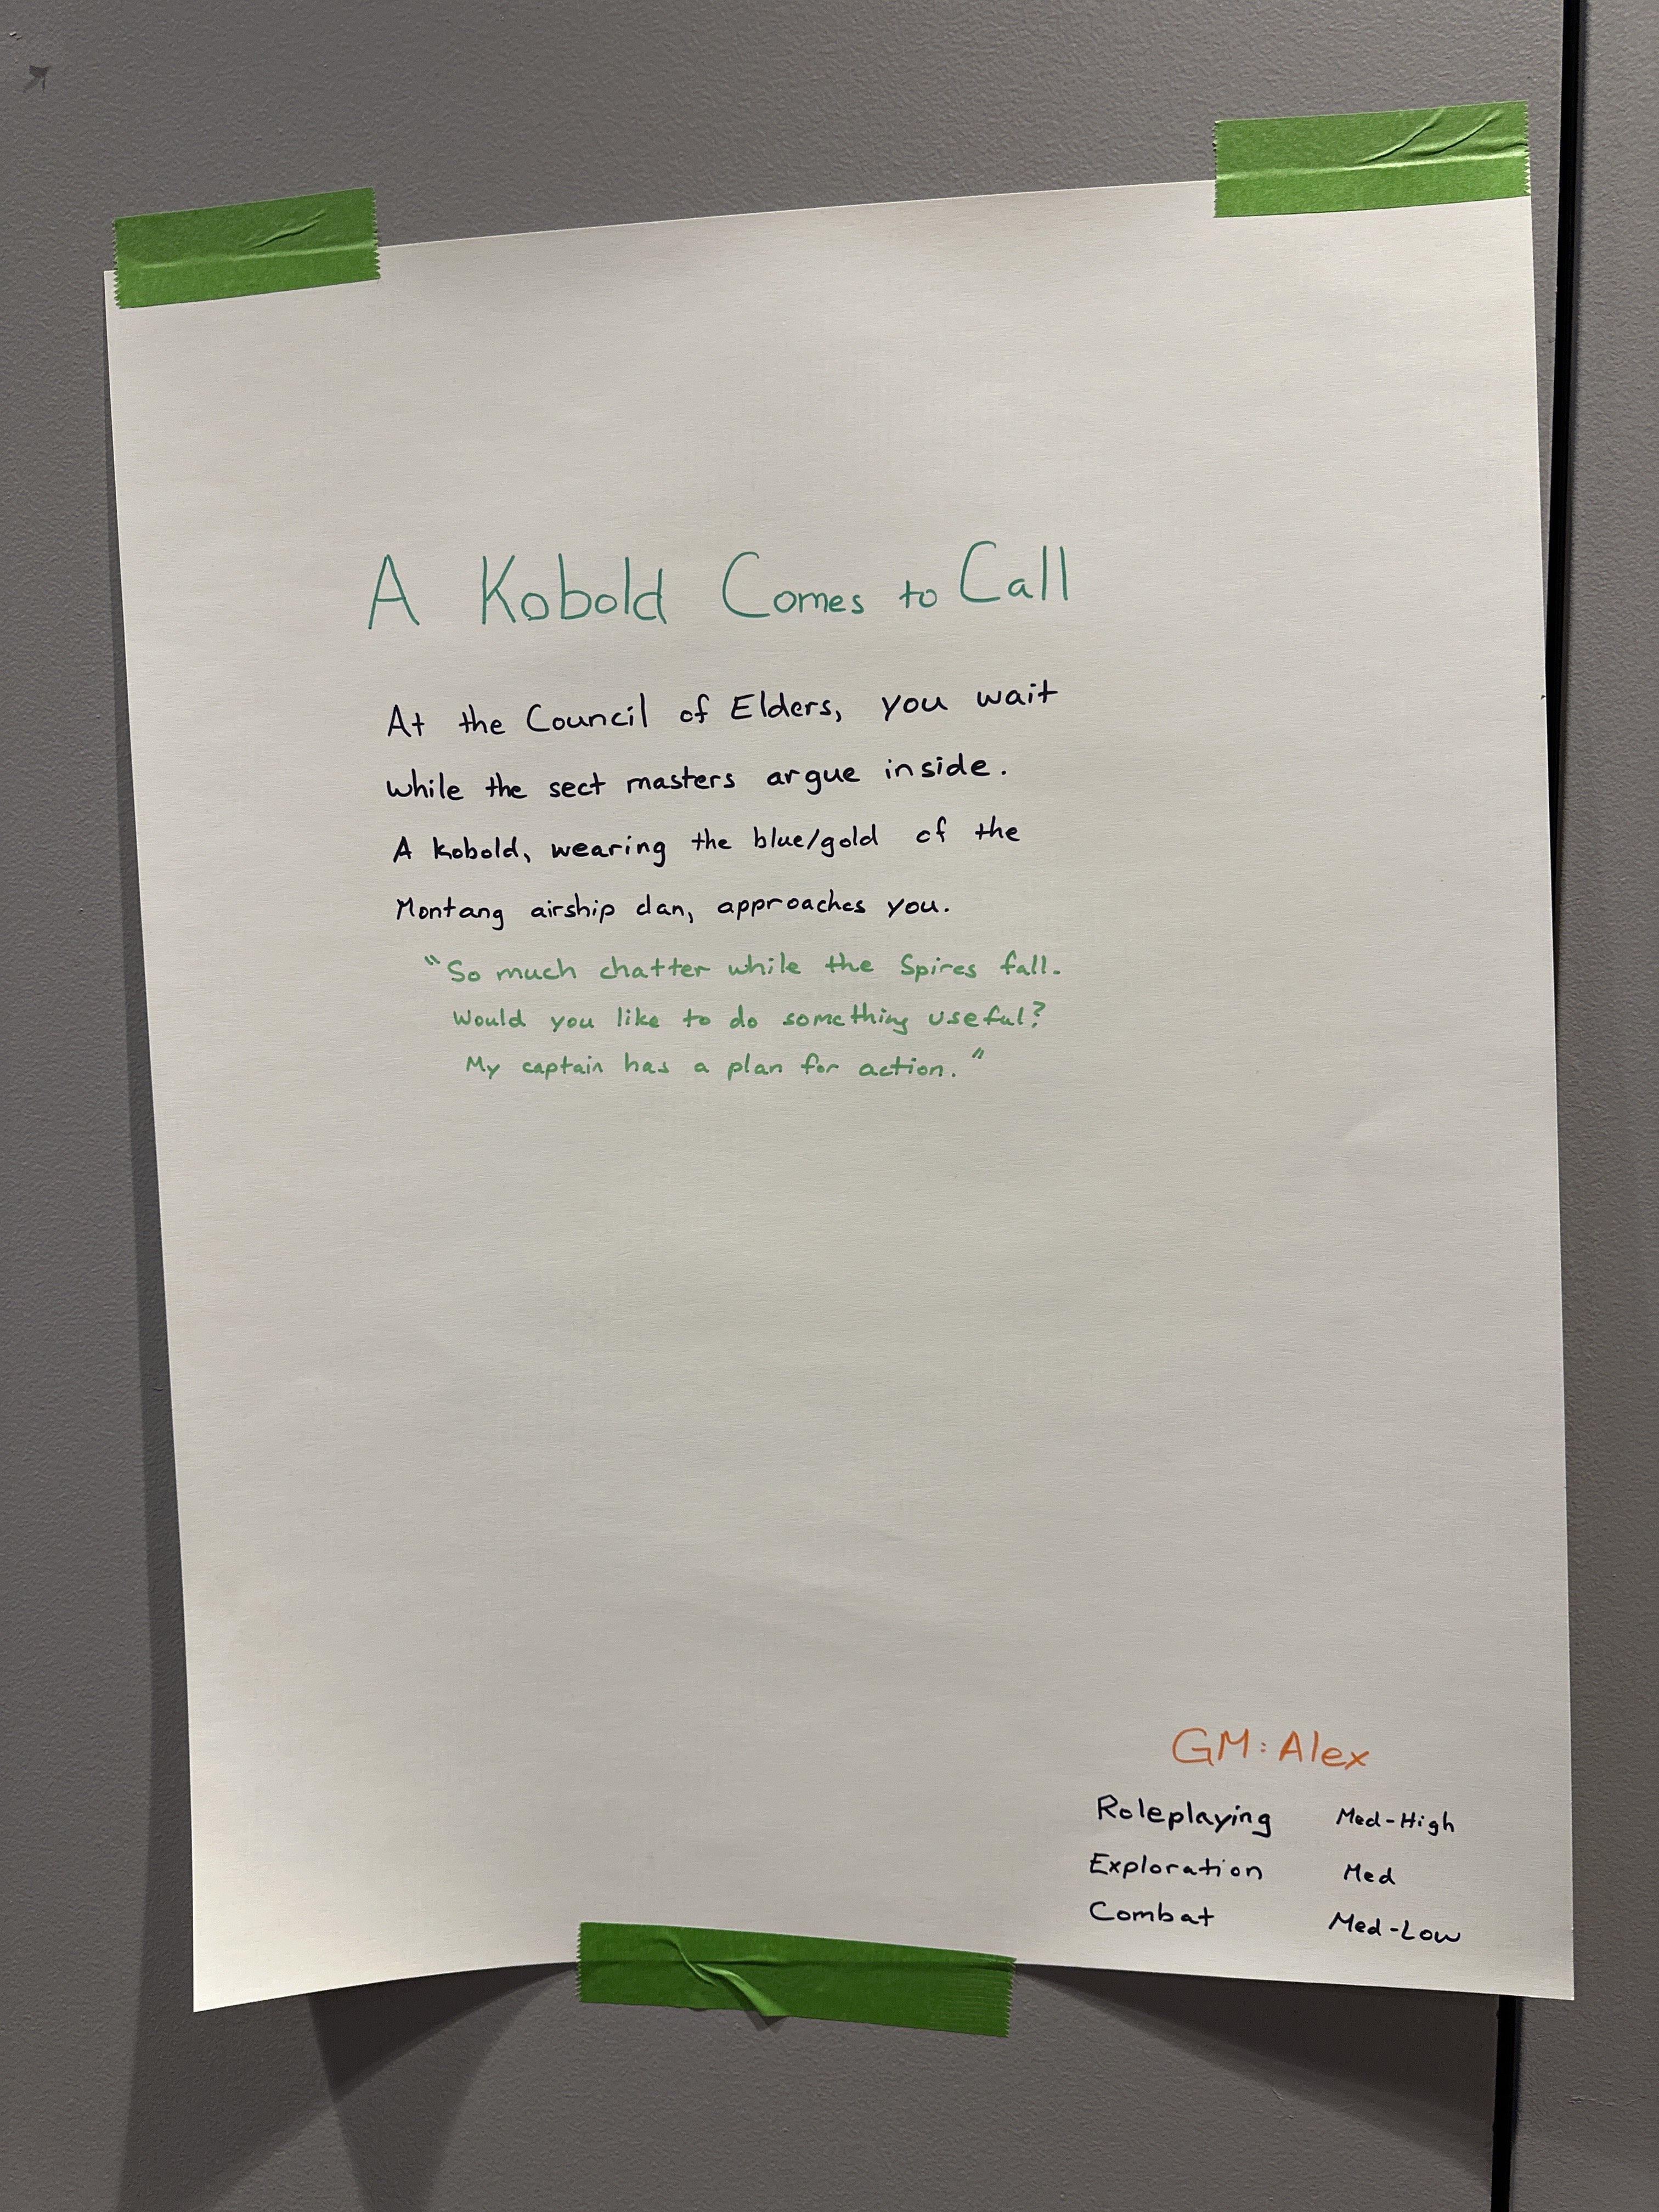 A Kobold Comes to Call
At the Council of Elders, you wait
while the sect masters argue inside.
A kobold, wearing the blue/gold of the
Montang airship clan, approaches you.
"So much chatter while the Spires fall.
Would you like to do something useful?
My captain has a plan for action."
GM: Alex
Roleplaying Med-High
Exploration Med
Combat Med-Low